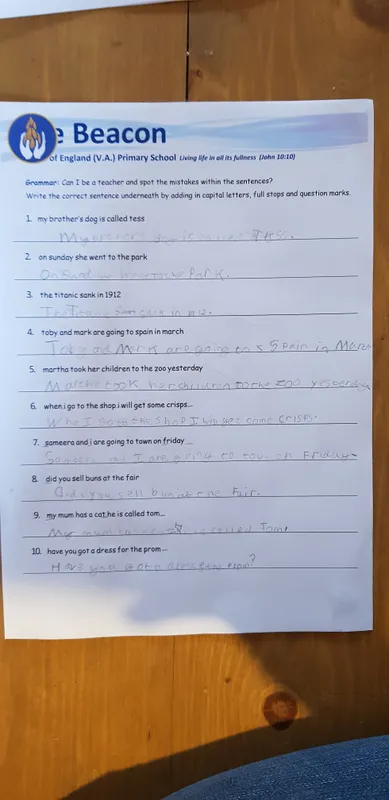 e Beacon
of England (V.A.) Primary School Living life in all its fullness (John 10:10)
Grammar: Can I be a teacher and spot the mistakes within the sentences?
Write the correct sentence underneath by adding in capital letters, full stops and question marks.
1. my brother's dog is called tess
My
2. on sunday she went to the park
Park.
3. the titanic sank in 1912
The Titanic in
4. toby and mark are going to spain in march
Toby and Mark are going to Spain in March
5. martha took her children to the zoo yesterday
took her children to the zoo yesterday
6. when i go to the shop i will get some crisps...
the Shop I get crisps.
7. sameera and i are going to town on friday ...
I are going to on Friday
8. did you sell buns at the fair
Did you sell buns at the Fair.
9. my mum has a cat he is called tom...
My mum is called Tom
10. have you got a dress for the prom ...
Have you got a dress for the prom?